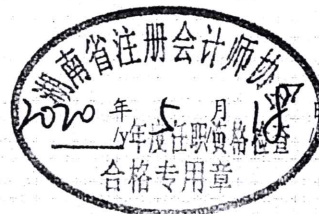 湖南省注册会计师协会
2020 年 5 月 18 日
年度任职资格检查
合格专用章